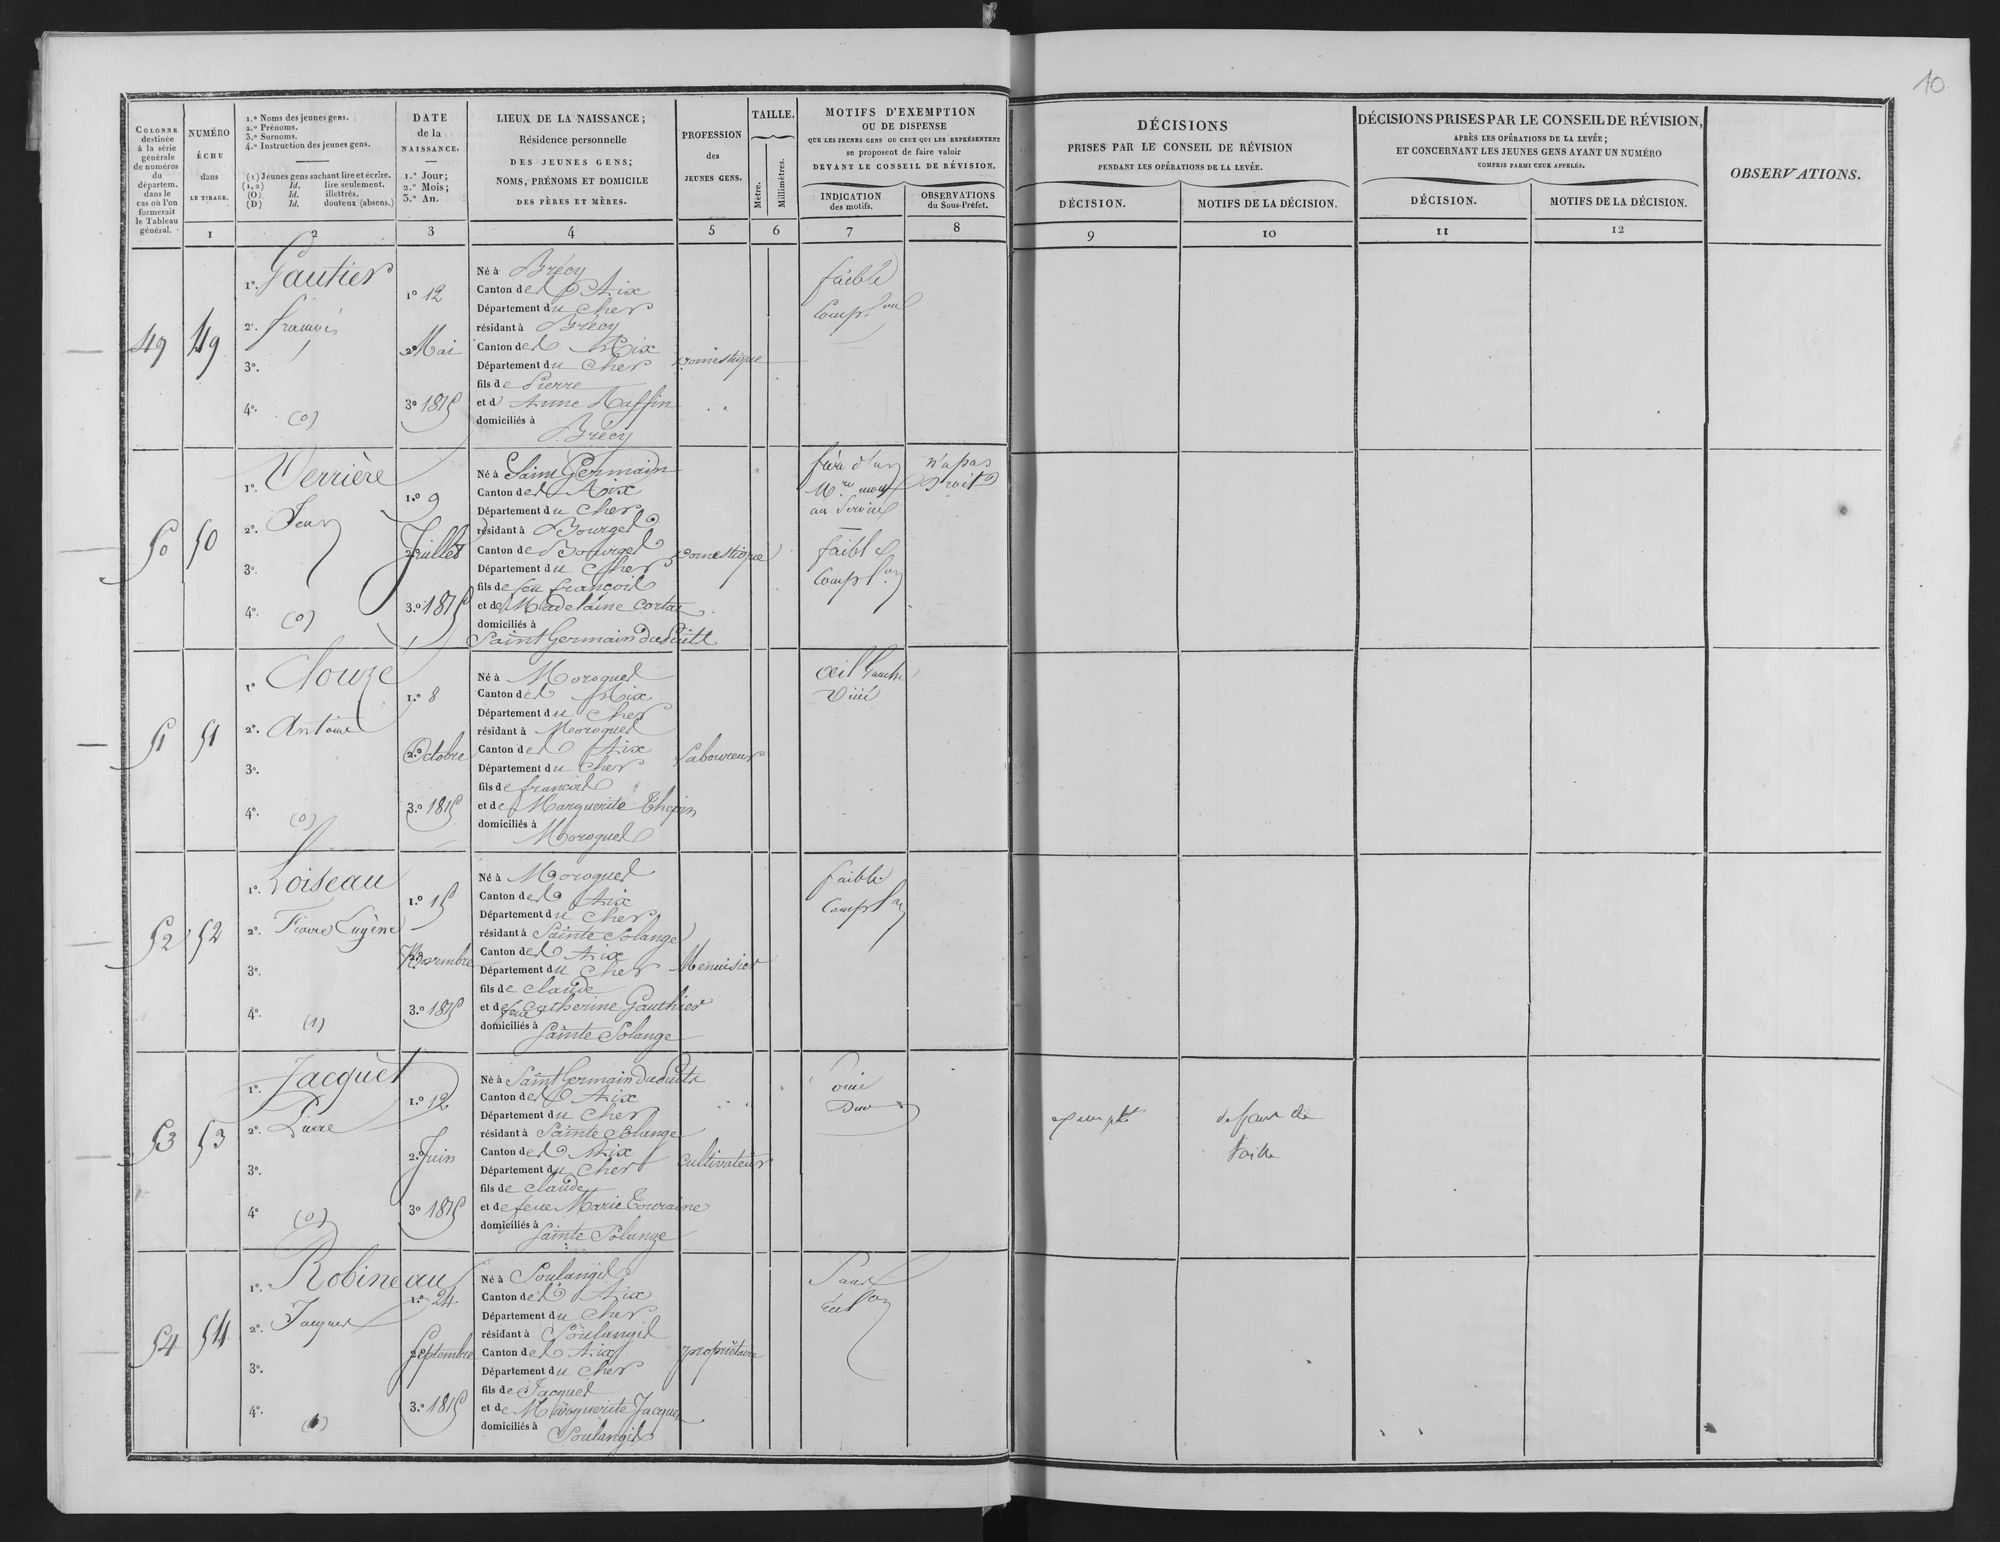 10
COLONNE destinée à la série générale de numéros du départem. dans le cas où l'on formerait le Tableau général.
NUMÉRO ÉCHU dans LE TIRAGE.
1.° Noms des jeunes gens.
2.° Prénoms.
3.° Surnoms.
4.° Instruction des jeunes gens.
(1) Jeunes gens sachant lire et écrire.
(1,2) Id. lire seulement.
(0) Id. illettrés.
(D) Id. douteux (absens.)
DATE de la NAISSANCE.
1.° Jour;
2.° Mois;
3.° An.
LIEUX DE LA NAISSANCE;
Résidence personnelle
DES JEUNES GENS;
NOMS, PRÉNOMS ET DOMICILE
DES PÈRES ET MÈRES.
PROFESSION des JEUNES GENS.
TAILLE.
Metre.
Millimètres.
MOTIFS D'EXEMPTION
OU DE DISPENSE
QUE LES JEUNES GENS OU CEUX QUI LES REPRÉSENTENT
se proposent de faire valoir
DEVANT LE CONSEIL DE RÉVISION.
INDICATION des motifs.
OBSERVATIONS du Sous-Préfet.
DÉCISIONS
PRISES PAR LE CONSEIL DE RÉVISION
PENDANT LES OPÉRATIONS DE LA LEVÉE.
DÉCISION.
MOTIFS DE LA DÉCISION.
DÉCISIONS PRISES PAR LE CONSEIL DE RÉVISION,
APRÈS LES OPÉRATIONS DE LA LEVÉE;
ET CONCERNANT LES JEUNES GENS AYANT UN NUMÉRO
COMPRIS PARMI CEUX APPELÉS.
DÉCISION.
MOTIFS DE LA DÉCISION.
OBSERVATIONS.
1 2 3 4 5 6 7 8 9 10 11 12
49 49
1°. Gautier
2°. françois
3°.
4°. (0)
1° 12
2° Mai
3° 1815
Né à Brécy
Canton des Aix
Département du Cher
résidant à Brécy
Canton des Aix
Département du Cher
fils de Pierre
et d' Anne Raffin
domiciliés à
Brécy
Domestique
faible
Comp.on
50 50
1°. Verrière
2°. Jean
3°.
4°. (0)
1.° 9
2° Juillet
3.° 1815
Né à Saint Germain
Canton des Aix
Département du Cher
résidant à Bourges
Canton de Bourges
Département du Cher
fils de feu françois
et de Madelaine
domiciliés à
Saint Germain du Puits
Domestique
frère d'un
Mre mort
au Service
faible
Compl.on
n'a pas
Droit
51 51
1° Clouze
2°. Antoine
3°.
4°. (0)
1.° 8
2.° Octobre
3.° 1815
Né à Moroques
Canton des Aix
Département du Cher
résidant à Moroques
Canton des Aix
Département du Cher
fils de françois
et de Marguerite
domiciliés à
Moroques
Laboureur
œil Gauche
52 52
1°. Loiseau
2°. Pierre Eugène
3°.
4°. (1)
1.° 15
2° Novembre
3.° 1815
Né à Moroques
Canton des Aix
Département du Cher
résidant à Sainte Solange
Canton des Aix
Département du Cher
fils de Claude
et de feue Catherine Gauthier
domiciliés à
Sainte Solange
Menuisier
faible
Compl.on
53 53
1°. Jacquet
2°. Pierre
3°.
4° (0)
1.° 12
2.° Juin
3° 1815
Né à Saint Germain du Puits
Canton des Aix
Département du Cher
résidant à Sainte Solange
Canton des Aix
Département du Cher
fils de Claude
et de feue Marie Touraine
domiciliés à
Sainte Solange
Cultivateur
Ouie
Dure
exempté
defaut de
taille
54 54
1°. Robineau
2°. Jacques
3°.
4°. (1)
1.° 24
2° Septembre
3.° 1815
Né à Soulangis
Canton des Aix
Département du Cher
résidant à Soulangis
Canton des Aix
Département du Cher
fils de Jacques
et de Marguerite Jacquet
domiciliés à
Soulangis
propriétaire
Sans